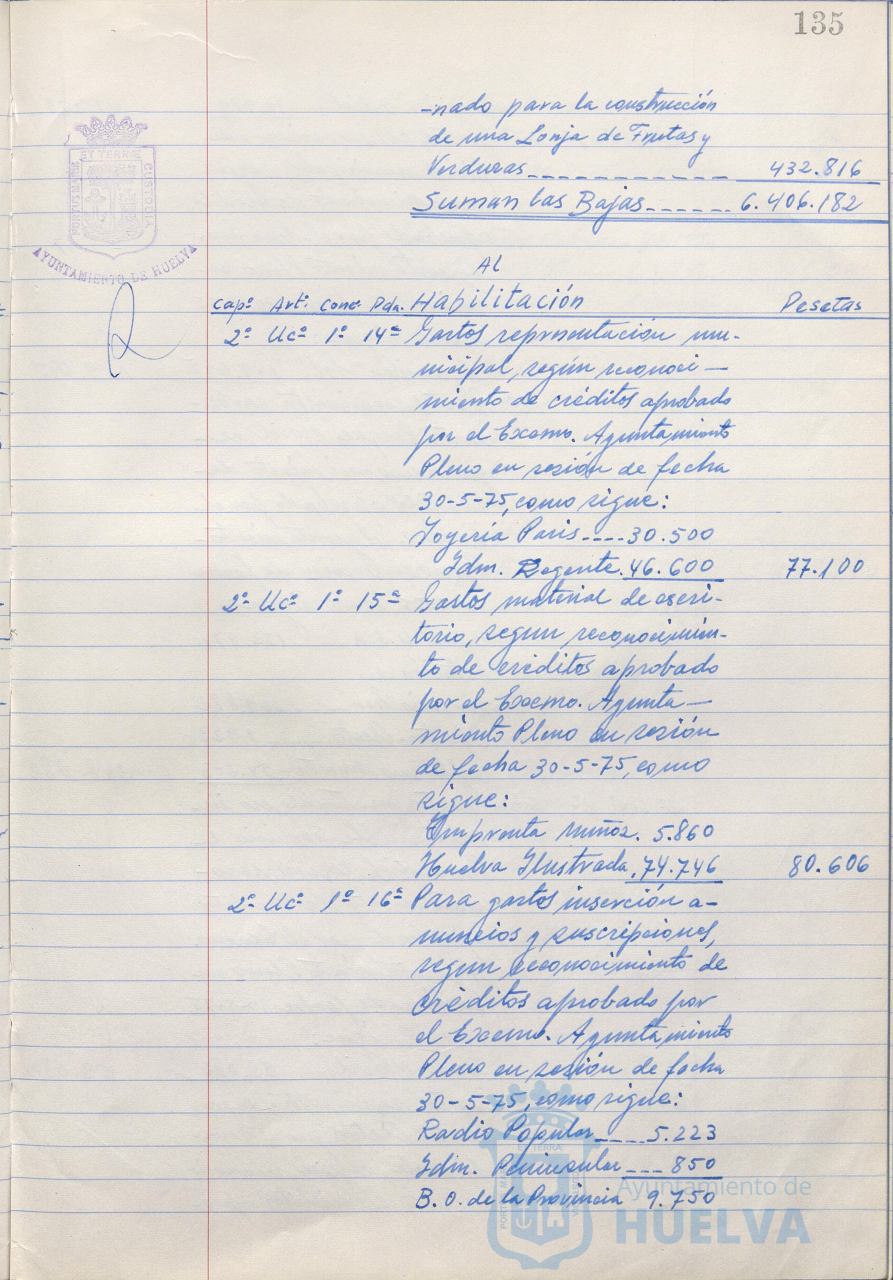 135
-nado para la construcción
de una Lonja de Frutas y
Verduras ------------ 432.816
Suman las Bajas ------ 6.406.182
ET TERRÆ
PORTUS MARIS
CUSTODIA
AYUNTAMIENTO DE HUELVA
AL
Capº Artº Concº Pda. Habilitación Pesetas
2º Ucº 1º 14ª Gastos representación mu-
nicipal, según reconoci-
miento de créditos aprobado
por el Excmo. Ayuntamiento
Pleno en sesión de fecha
30-5-75, como sigue:
Joyería Paris ---- 30.500
Idm. Regente. 46.600 77.100
2º Ucº 1º 15ª Gastos material de escri-
torio, segun reconocimien-
to de créditos aprobado
por el Excmo. Ayunta-
miento Pleno en sesión
de fecha 30-5-75, como
sigue:
Empronta Muñoz. 5.860
Huelva Ilustrada. 74.746 80.606
2º Ucº 1º 16ª Para gastos inserción a-
nuncios y suscripciones,
segun reconocimiento de
créditos aprobado por
el Excmo. Ayuntamiento
Pleno en sesión de fecha
30-5-75, como sigue:
Radio Popular ---- 5.223
Idm. Peninsular --- 850
B. O. de la Provincia 9.750
Ayuntamiento de
HUELVA